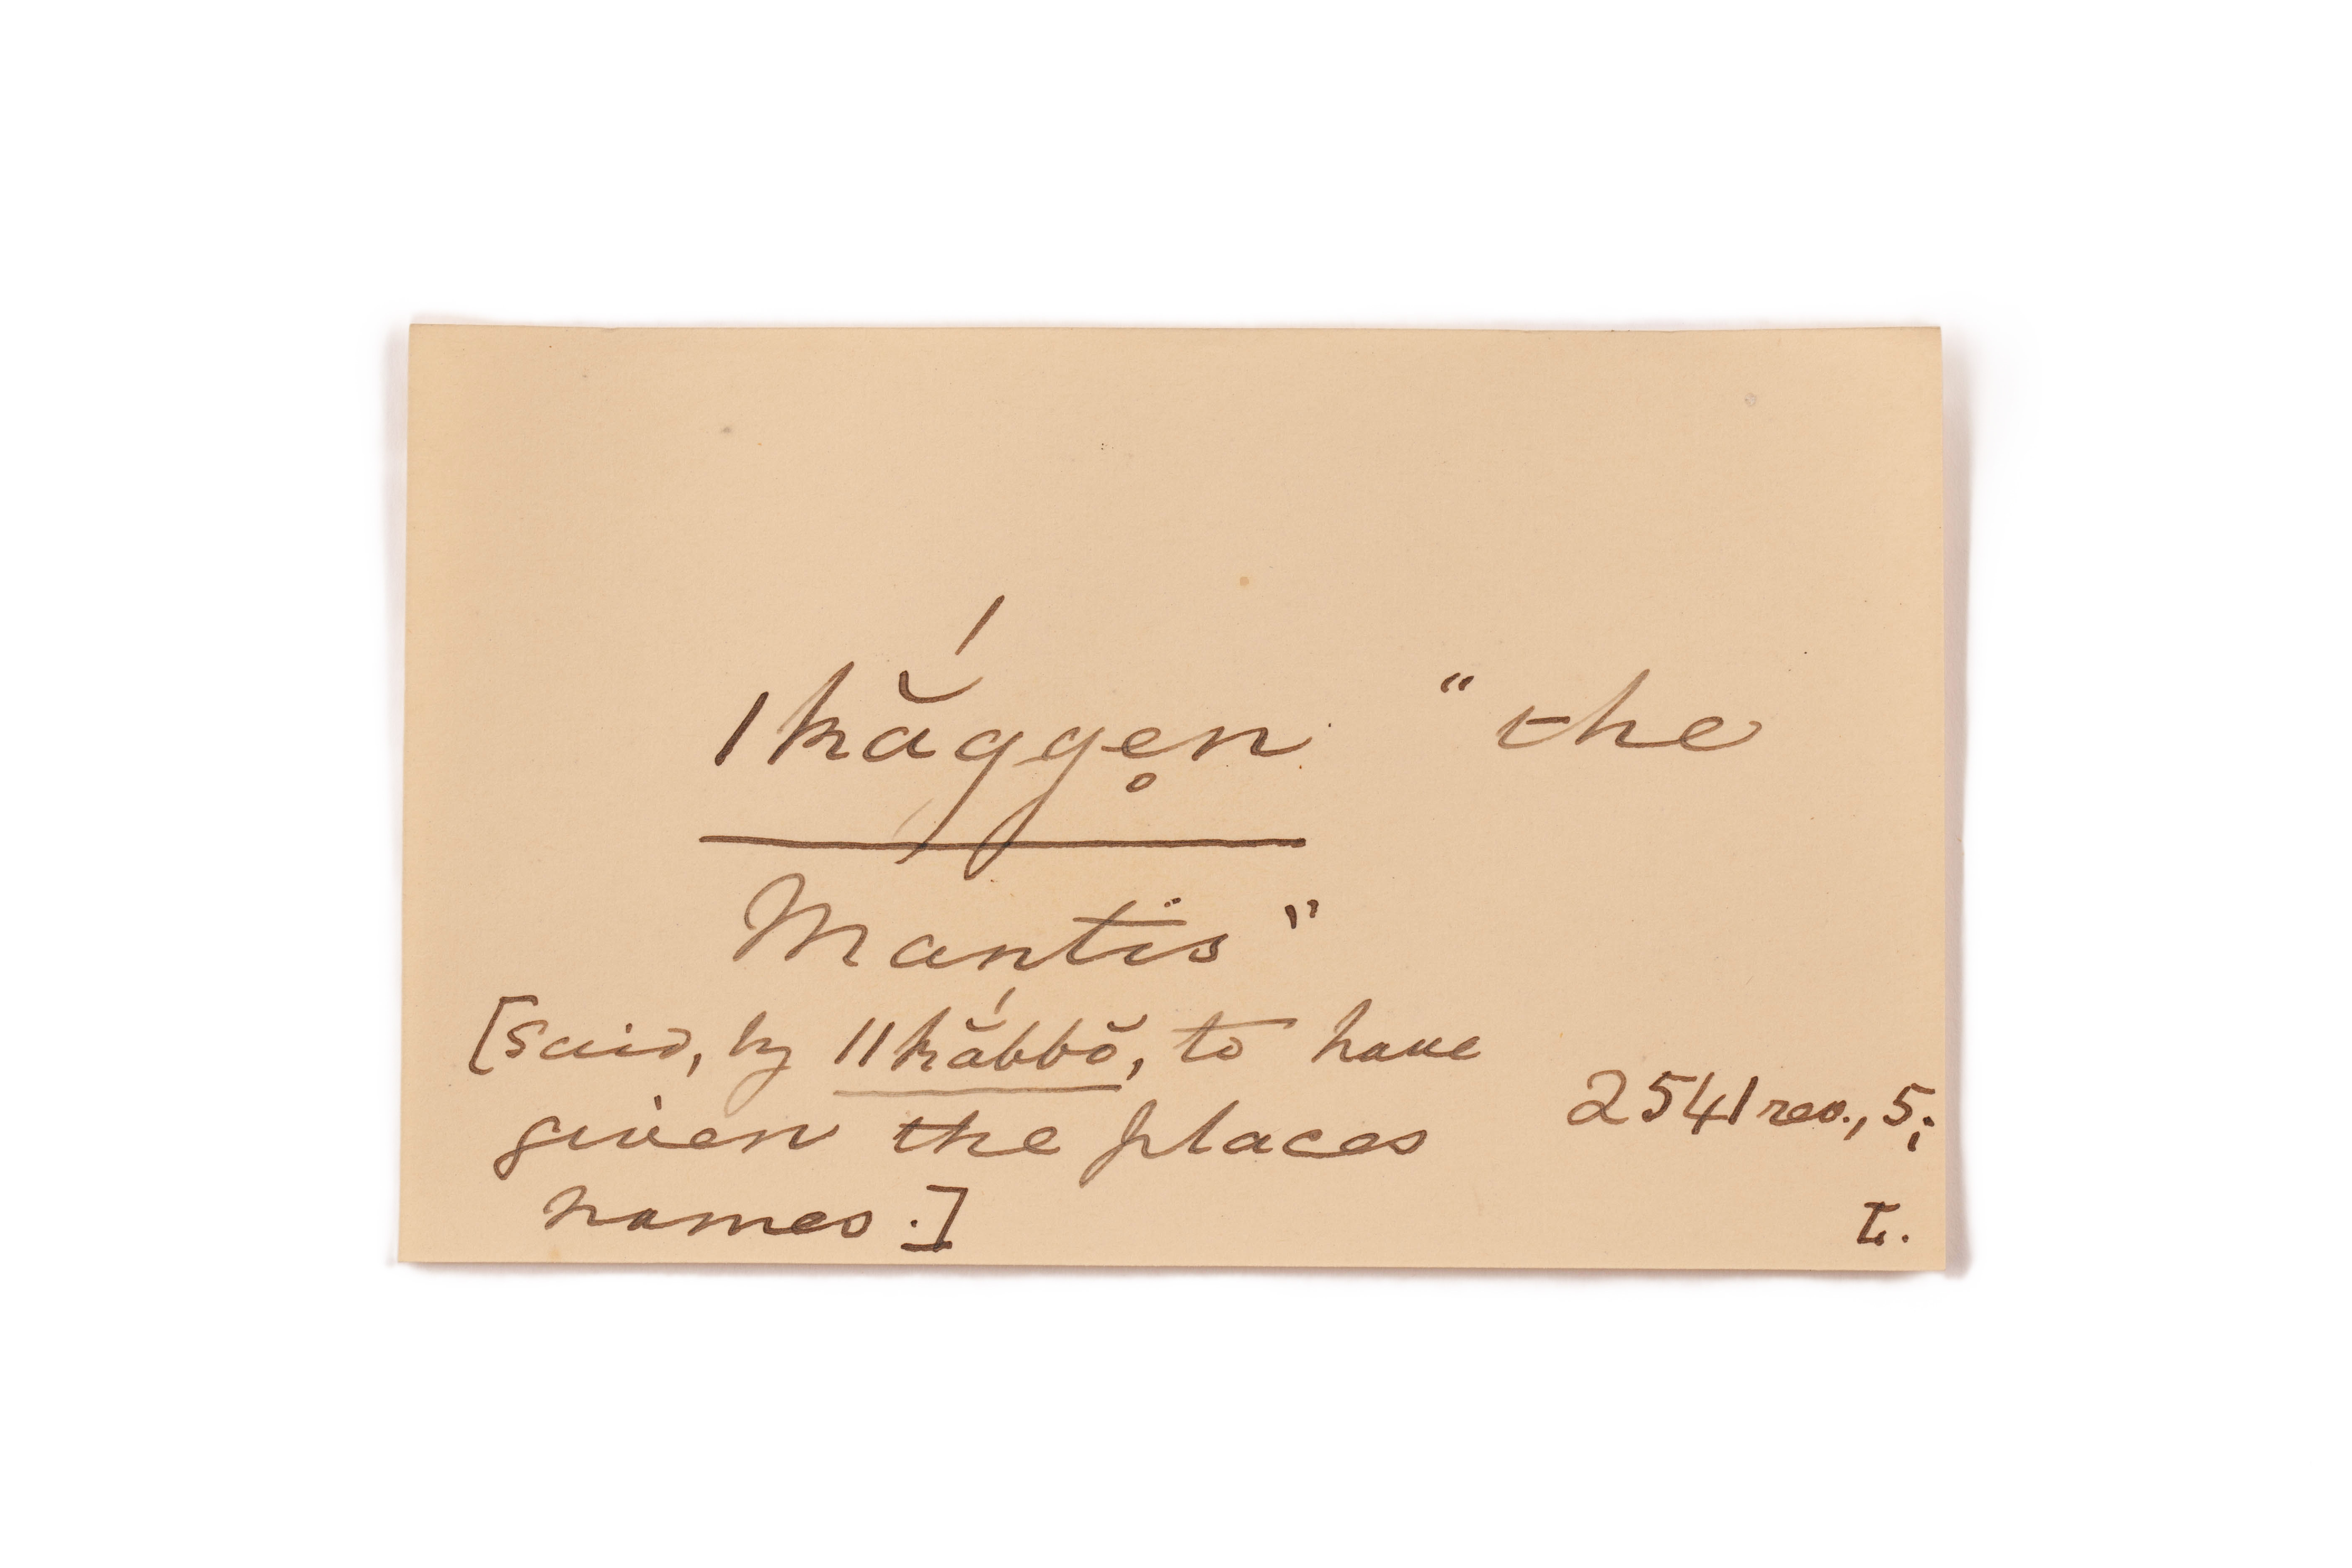 |kắgge̥n "the
Mantis"
[said, by ||kắbbŏ, to have
given the places
names.]
2541 rev., 5;
L.